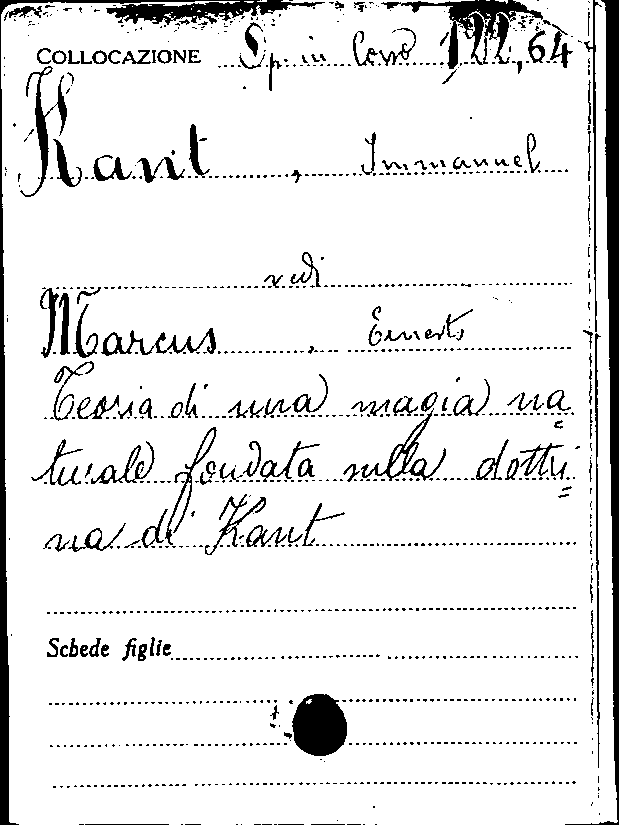 COLLOCAZIONE Sp. in Corso 122,64
Kant, Immanuel
vedi
Marcus, Ernesto
Teoria di una magia na=
turale fondata sulla dottri=
na di Kant
Schede figlie